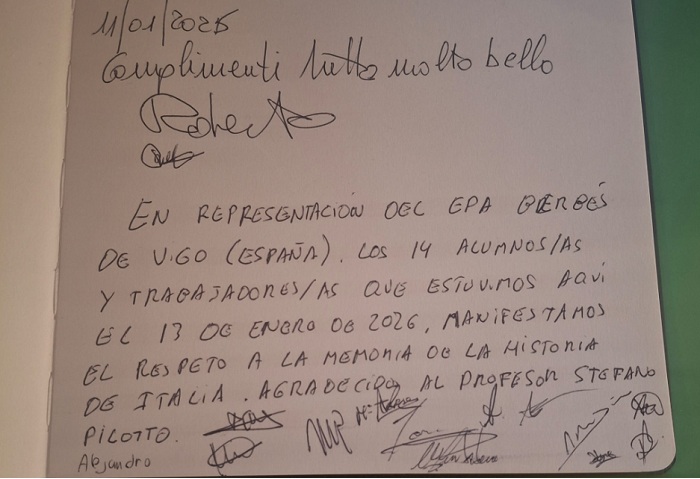 11/01/2026
Complimenti tutto molto bello
Roberto
EN REPRESENTACIÓN DEL EPA BERBÉS
DE VIGO (ESPAÑA). LOS 14 ALUMNOS/AS
Y TRABAJADORES/AS QUE ESTUVIMOS AQUÍ
EL 13 DE ENERO DE 2026, MANIFESTAMOS
EL RESPETO A LA MEMORIA DE LA HISTORIA
DE ITALIA. AGRADECIDO AL PROFESOR STEFANO
PILOTTO.
Alejandro